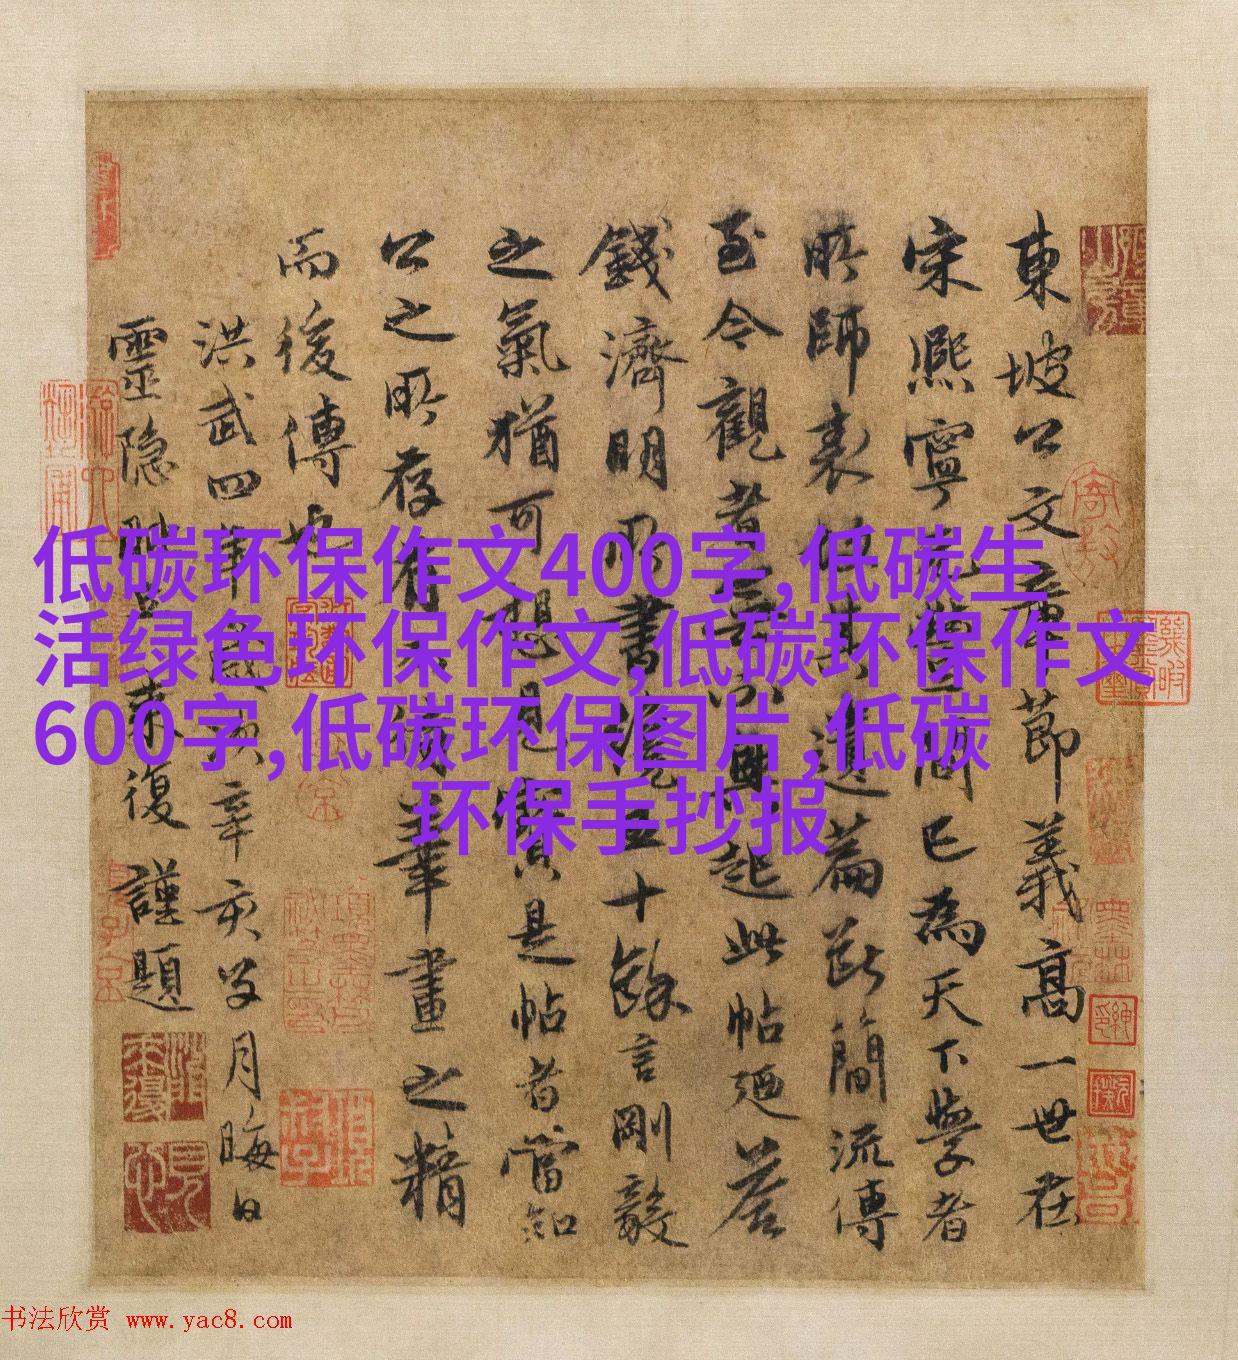 低碳环保作文400字,低碳生
活绿色环保作文,低碳环保作文
600字,低碳环保图片,低碳
环保手抄报
東坡公文章節義高一世在
宋熙寧元豐間已為天下學者
所師表但其遺篇斷簡流傳
至今觀者無不興起此帖廼答
錢濟明書五十餘言剛毅
之氣猶可想見是帖者當知
公之所存有筆畫之精
而後傳也
洪武四年歲辛亥月晦日
靈隱来復謹題
书法欣赏 www.yac8.com